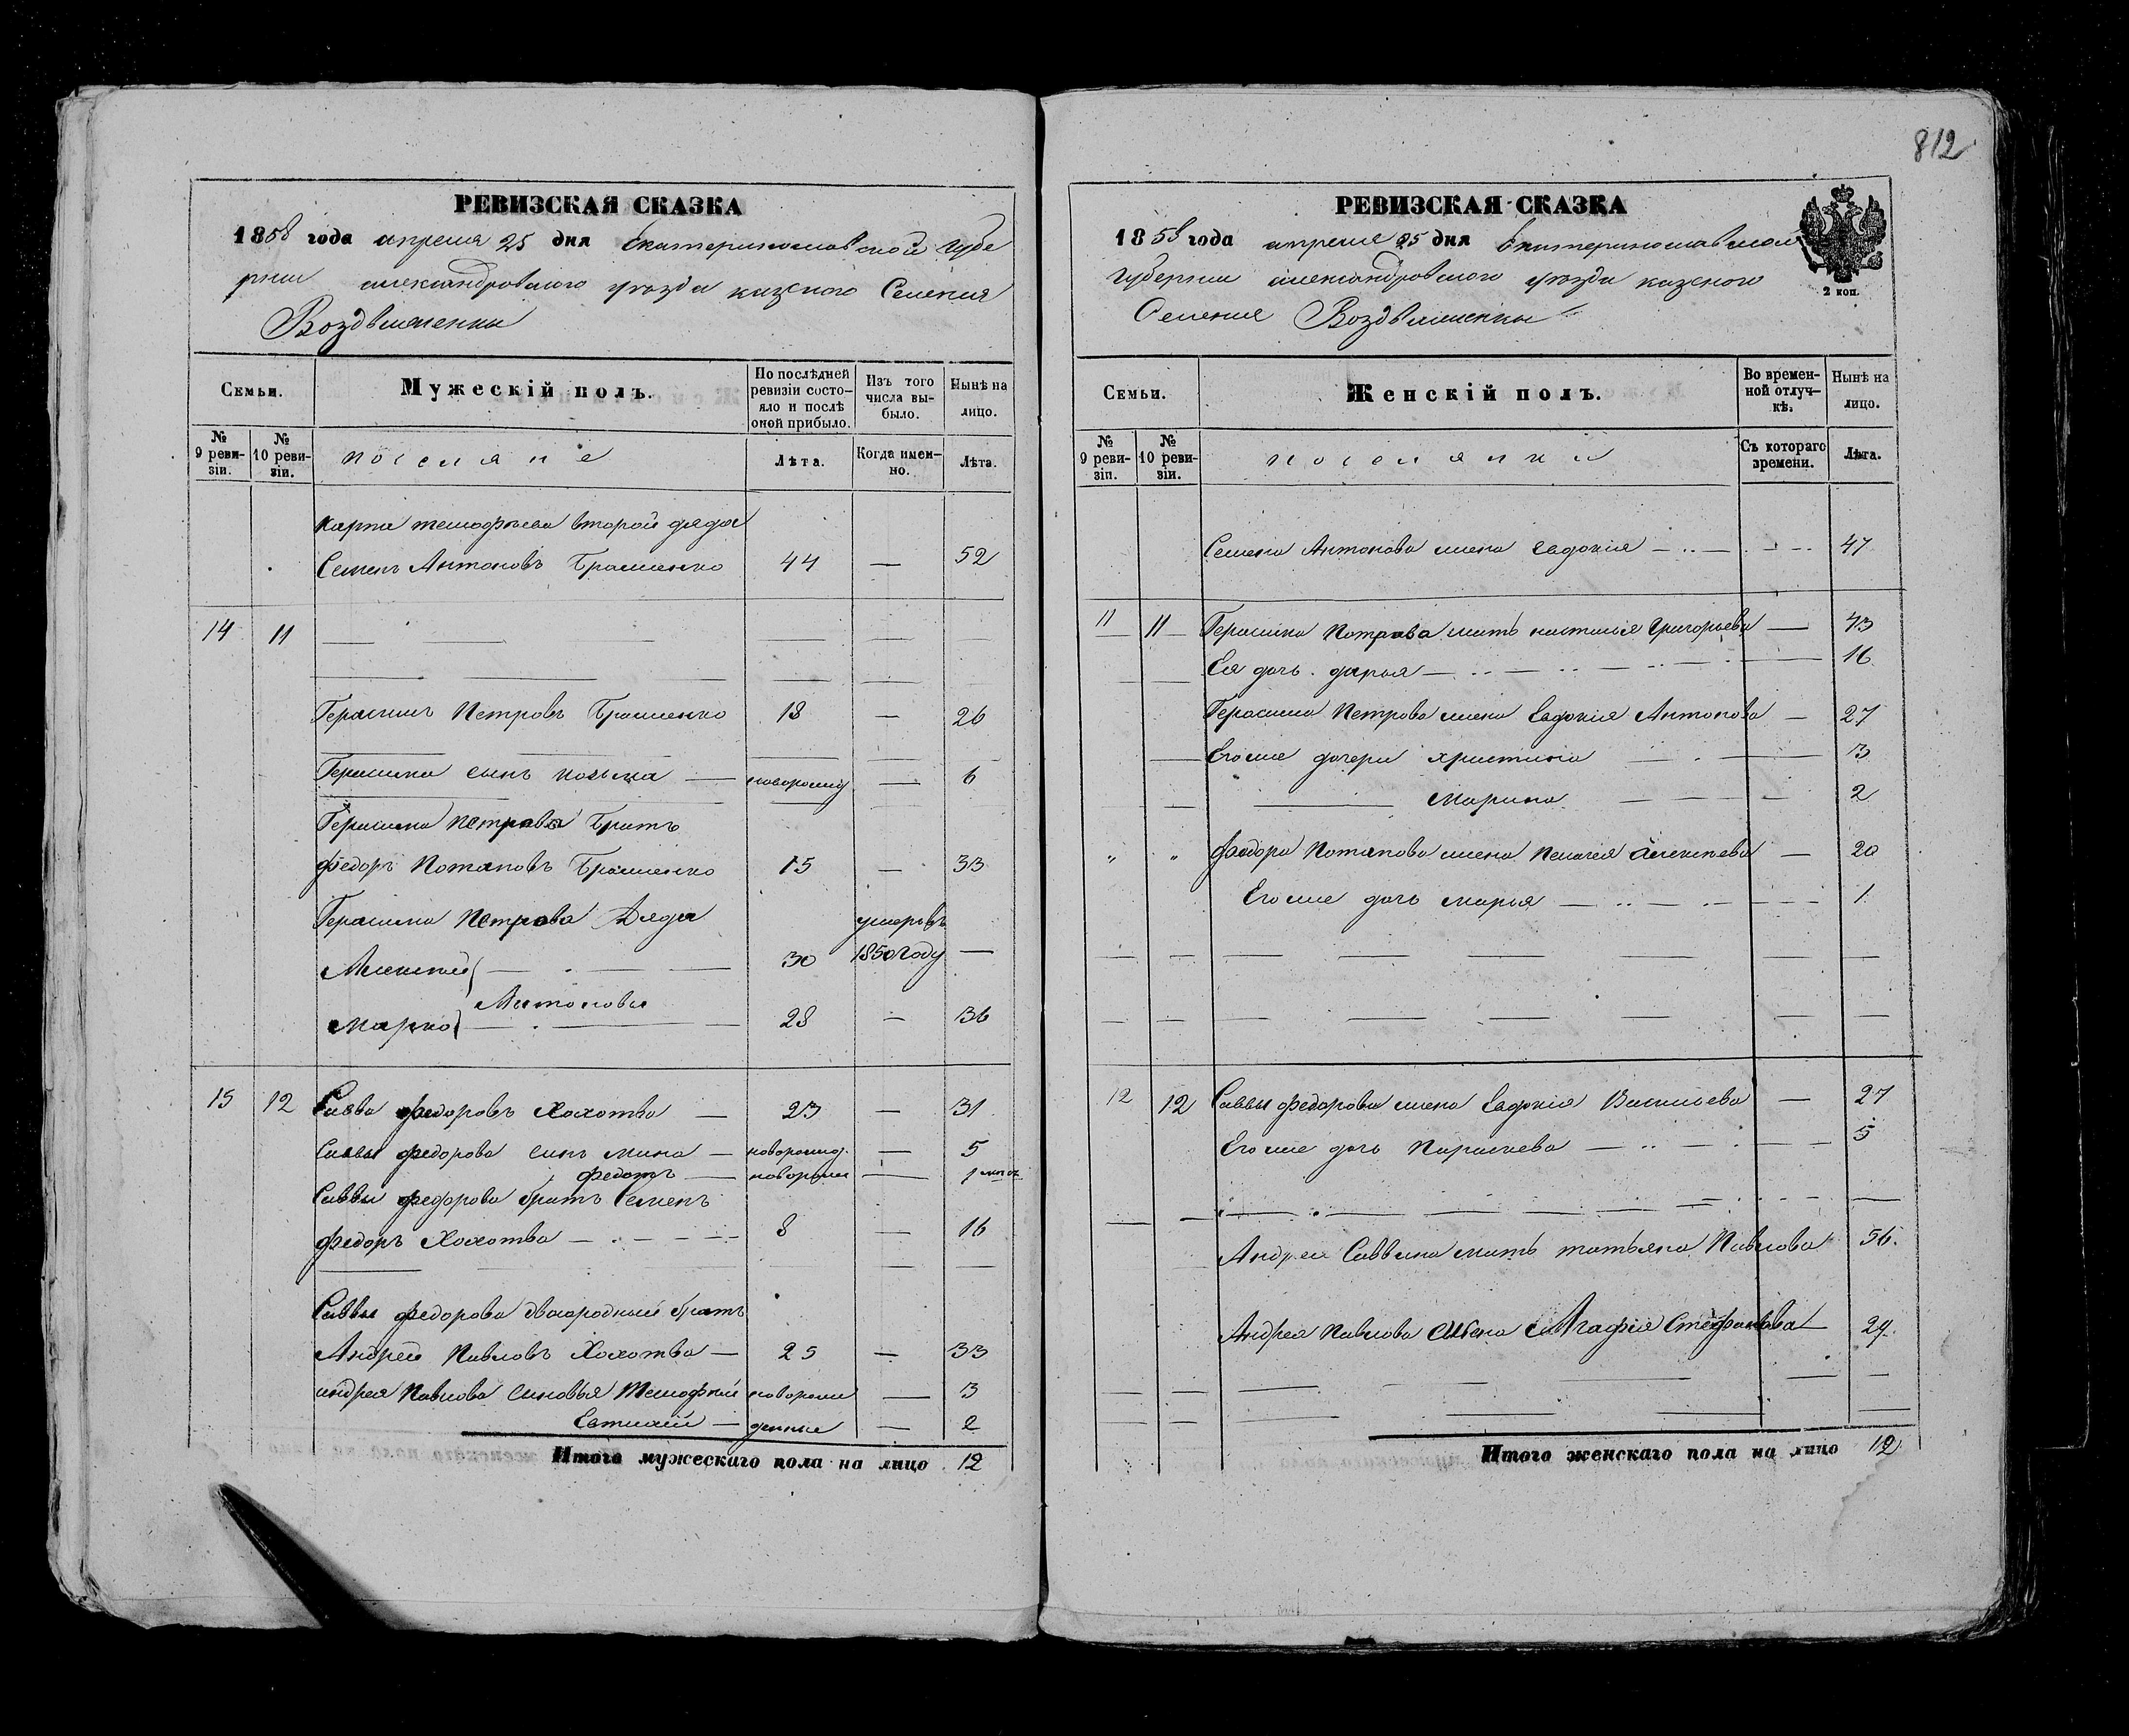 812
РЕВИЗСКАЯ СКАЗКА
1858 года апреля 25 дня Екатеринославской Губе
рнии александровского уѣзда казеного Селения
Воздвиженки
Семьи.
Мужескій полъ.
По послѣдней ревизіи состояло и послѣ оной прибыло.
Изъ того числа выбыло.
Нынѣ на лицо.
№ 9 ревизіи.
№ 10 ревизіи.
поселяне
Лѣта.
Когда именно.
Лѣта.
карпа тимофѣева второй дядя
Семенъ Антоновъ 44 — 52
14 11
Герасимъ Петровъ 18 — 26
Герасима сынъ козьма — новорожд — 6
Герасима петрова братъ
федоръ Потаповъ 15 — 33
Герасима Петрова Дядя умеръ въ
Алексѣй — 30 1850 году —
Антоновы
Марко — 28 — 36
15 12 Савва федоровъ Хохотва — 23 — 31
Саввы федорова синъ мина — новорожд. — 5
федотъ — новорож — 1 мцъ
Саввы федорова братъ Семенъ
федоръ Хохотва — 8 — 16
Саввы федорова двоюродный братъ
Андрей Павловъ Хохотва — 25 — 33
андрея Павлова синовья Тимофѣй новорож — 3
Евтихий — денные — 2
Итого мужескаго пола на лицо 12
РЕВИЗСКАЯ СКАЗКА
1858 года апреля 25 дня Екатеринославской
Губернии александровского уѣзда казеного
Селения Воздвиженки
2 коп.
Семьи.
Женскій полъ.
Во временной отлучкѣ.
Нынѣ на лицо.
№ 9 ревизіи.
№ 10 ревизіи.
поселянки
Съ котораго времени.
Лѣта.
Семена Антонова жена Евдокия — 47
11 11 Герасима Петрова мать настасья Григорьева — 43
Ея дочь дарья — 16
Герасима Петрова жена Евдокия Антонова — 27
Его же дочери христина — 3
Марина — 2
" " федора Потапова жена Пелагея алексѣева — 20
Его же дочь марья — 1
12 12 Саввы федорова жена Евдокия Васильева — 27
Его же дочь Параскева — 5
Андрея Саввина мать татьяна Павлова 56.
Андрея Павлова жена Агафия Стефанова — 29.
Итого женскаго пола на лицо 12